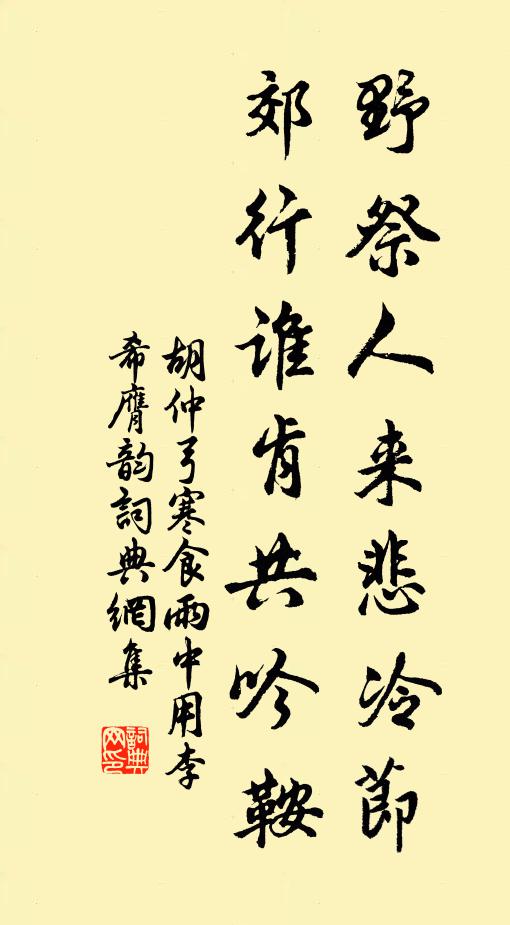 野祭人来悲冷節
郊行誰肯共吟鞍
胡仲弓寒食雨中用李
希膺韵詞典網集
詞典
网印